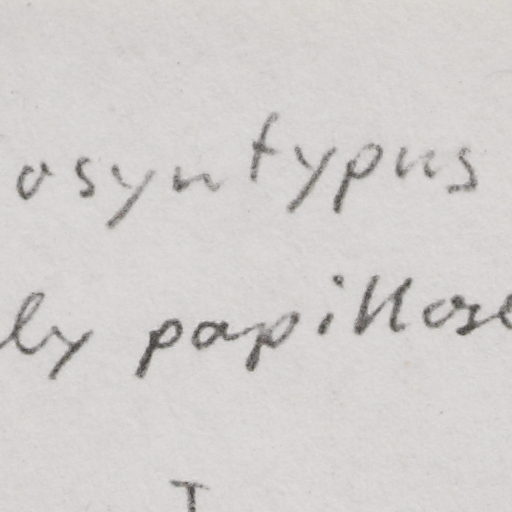 osyntypus
ly papillose
I